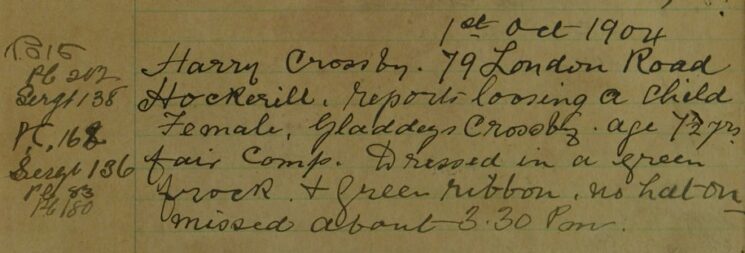 1st Oct 1904
Harry Crossby. 79 London Road
Hockerill. reports loosing a Child
Female, Gladdeys Crossby. age 7½ yrs.
fair Comp. Dressed in a green
frock. & green ribbon. no hat on
missed about 3.30 Pm.
PC 202
Sergt 138
P.C. 168
Sergt 136
PC 83
PC 80